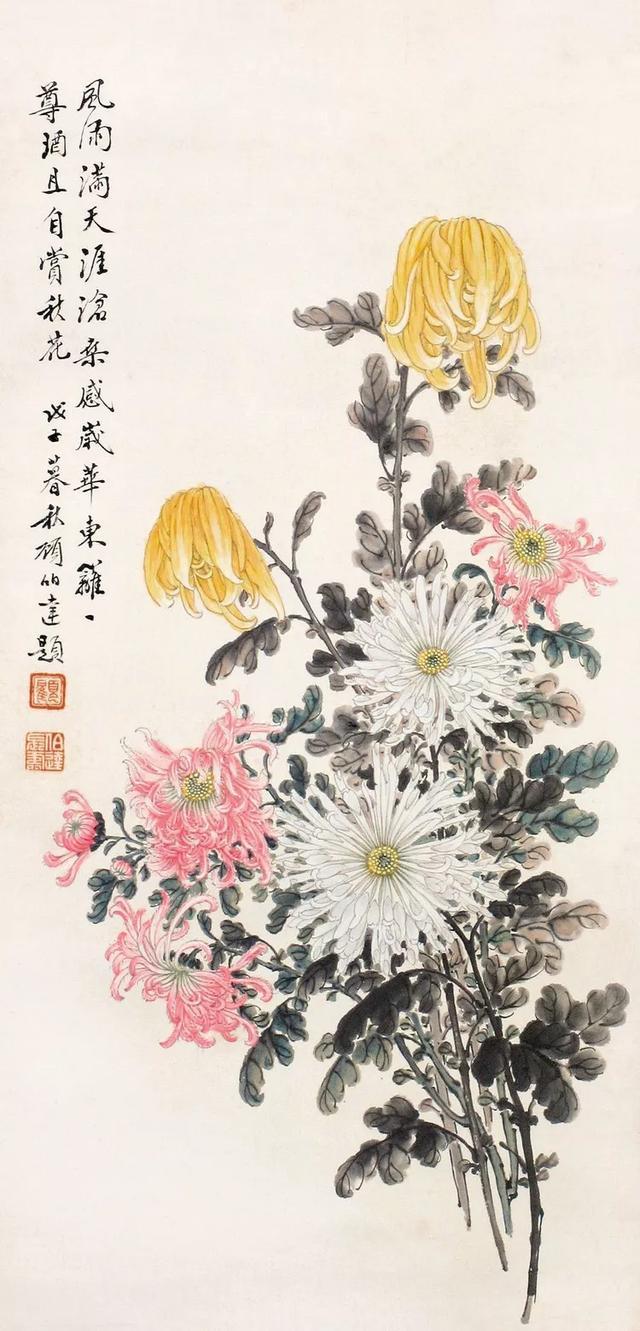 風雨滿天涯滄桒感歲華東籬一
尊酒且自賞秋花 戊子暮秋顧伯達題